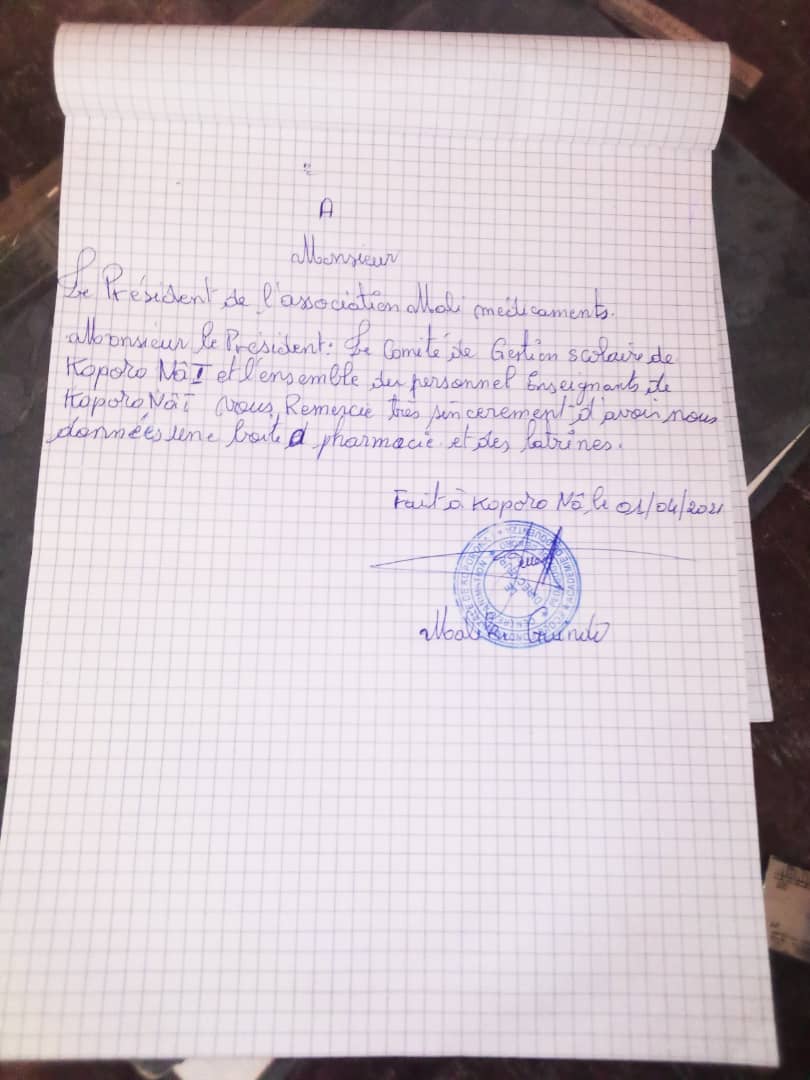 A
Monsieur
Le Président de l'association Mali médicaments.
Monsieur le Président: Le Comité de Gestion scolaire de
Koporo Nâ I et l'ensemble du personnel Enseignants de
Koporo Nâ I vous Remercie très sincerement d'avoir nous
données une boite d pharmacie et des latrines.
Fait à Koporo Nâ, le 01/04/2021
LE DIRECTEUR
Guindo